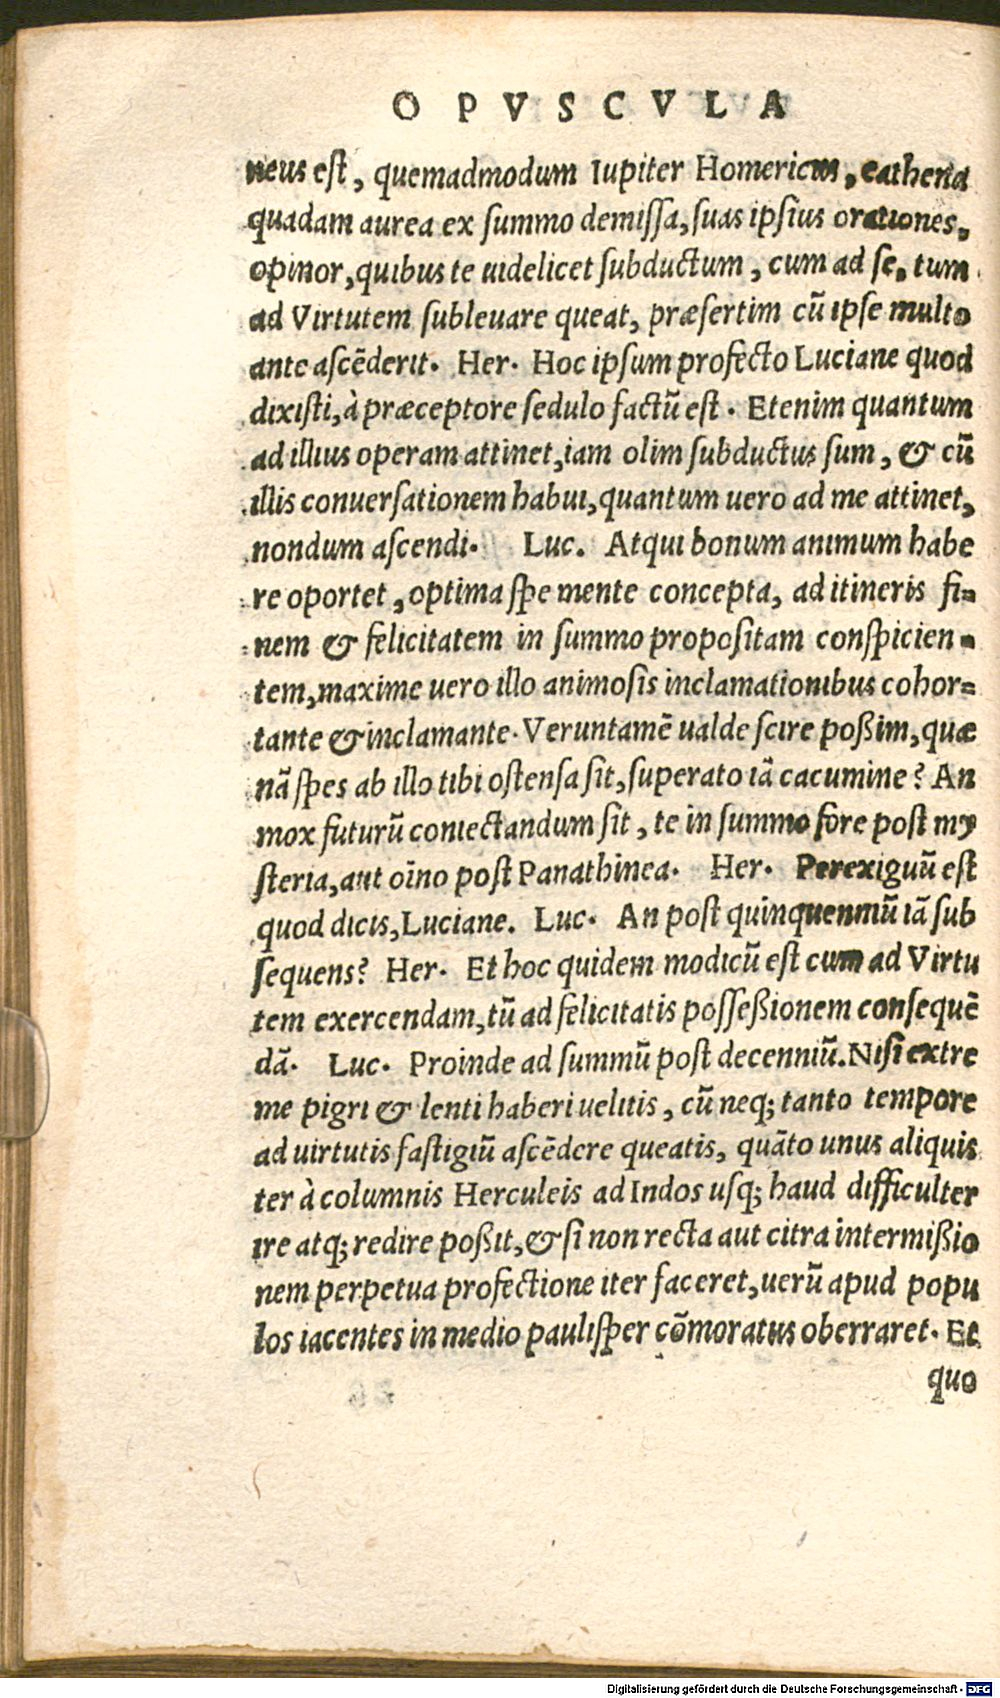 OPVSCVLA
neus est, quemadmodum Iupiter Homericus, cathena
quadam aurea ex summo demissa, suas ipsius orationes,
opinor, quibus te uidelicet subductum, cum ad se, tum
ad Virtutem subleuare queat, præsertim cũ ipse multo
ante ascẽderit. Her. Hoc ipsum profecto Luciane quod
dixisti, à præceptore sedulo factũ est. Etenim quantum
ad illius operam attinet, iam olim subductus sum, & cũ
illis conuersationem habui, quantum uero ad me attinet,
nondum ascendi. Luc. Atqui bonum animum habe
re oportet, optima spe mente concepta, ad itineris fi=
nem & felicitatem in summo propositam conspicien=
tem, maxime uero illo animosis inclamationibus cohor=
tante & inclamante. Veruntamẽ ualde scire poßim, quæ
nã spes ab illo tibi ostensa sit, superato iã cacumine? An
mox futurũ coniectandum sit, te in summo fore post my
steria, aut oĩno post Panathinea. Her. Perexiguũ est
quod dicis, Luciane. Luc. An post quinquenniũ iã sub
sequens? Her. Et hoc quidem modicũ est cum ad Virtu
tem exercendam, tũ ad felicitatis posseßionem consequẽ
dã. Luc. Proinde ad summũ post decenniũ. Nisi extre
me pigri & lenti haberi uelitis, cũ neq; tanto tempore
ad uirtutis fastigiũ ascẽdere queatis, quãto unus aliquis
ter à columnis Herculeis ad Indos usq; haud difficulter
ire atq; redire poßit, & si non recta aut citra intermißio
nem perpetua profectione iter faceret, uerũ apud popu
los iacentes in medio paulisper cõmoratus oberraret. Et
quo
Digitalisierung gefördert durch die Deutsche Forschungsgemeinschaft - DFG